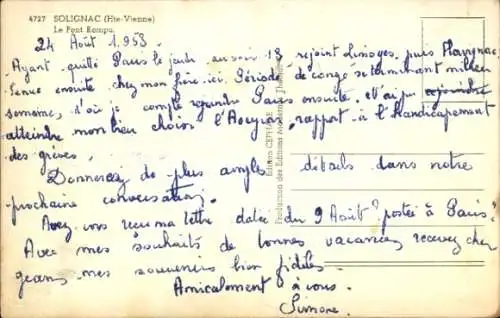 4727 SOLIGNAC (Hte-Vienne)
Le Pont Rompu
24 Août 1953
Ayant quitté Paris le jeudi au soir 13 rejoint Limoges, puis
Venue ensuite chez mon frère ici. Période de congé se terminant milieu
semaine, d'où je compte rejoindre Paris ensuite. N'ai pu rejoindre
atteindre mon lieu choisi l'Aveyron, rapport à l'handicapement
des grèves.
Donnerez de plus amples détails dans notre
prochaine conversation.
Avez vous reçu ma lettre datée du 9 Août? postée à Paris?
Avec mes souhaits de bonnes vacances recevez cher
mes souvenirs bien fidèles.
Amicalement à vous.
Simone.
Edition CEPHARE
Production des Editions